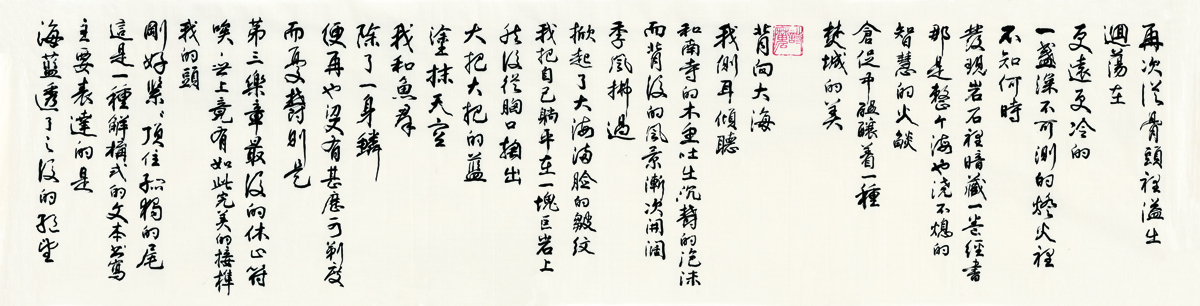 再次從骨頭裡溢出
迴蕩在
更遠更冷的
一盞深不可測的燈火裡
不知何時
發現岩石裡暗藏一卷經書
那是整个海也澆不熄的
智慧的火燄
倉促中醞釀着一種
焚城的美
背向大海
我側耳傾聽
和南寺的木魚吐出沉鬱的泡沫
而背後的風景漸次開闊
季風拂過
掀起了大海滿臉的皺紋
我把自己躺平在一塊巨岩上
然後從胸口掏出
大把大把的藍
塗抹天空
我和魚群
除了一身鱗
便再也沒有甚麼可剃度
而憂鬱則是
第三樂章最後的休止符
唉世上竟有如此完美的接榫
我的頭
剛好緊緊頂住孤獨的尾
這是一種解構式的文本書寫
主要表達的是
海藍透了之後的絕望